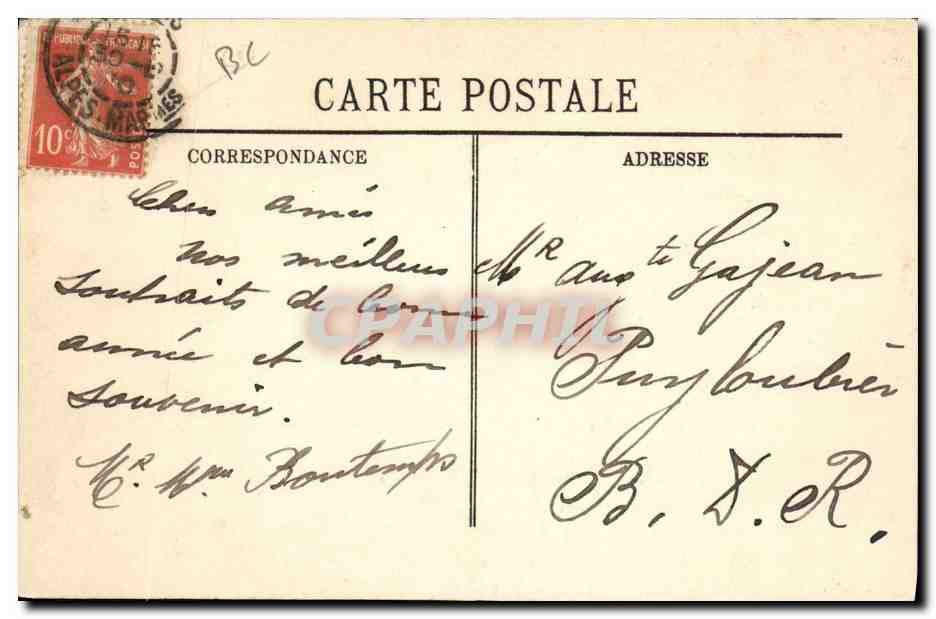 REPUBLIQUE FRANCAISE
10 c
POSTES
ALPES-MARMES
BC
CARTE POSTALE
CORRESPONDANCE
ADRESSE
Chers amis
nos meilleurs
souhaits de bonne
année et bon
souvenir.
Mr. Mme Bontemps
Mr augte Gajean
Puyloubier
B. D. R.
CPAPHIL